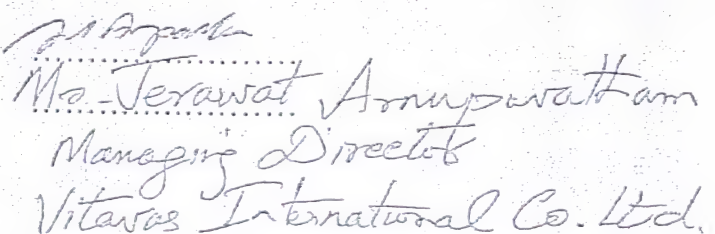 Mr. Jerawat Arnupwvattam
Managing Director
Vitavas International Co. Ltd.